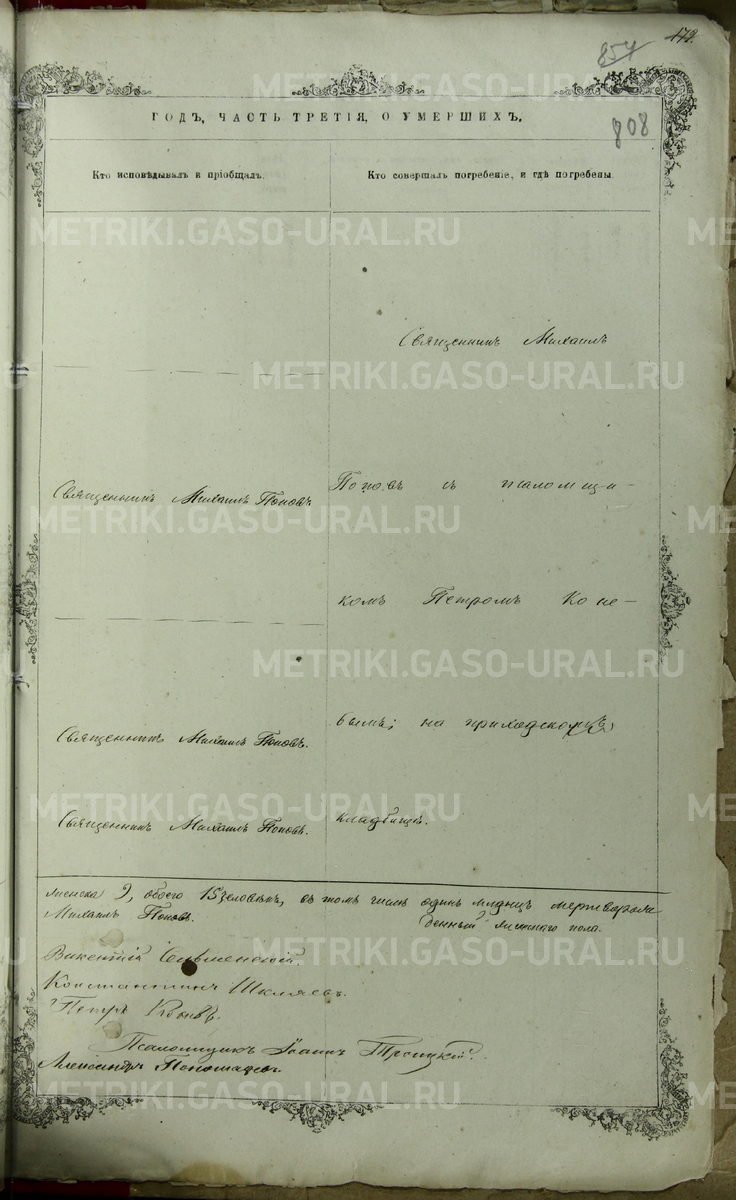 172.
854
808
ГОДЪ, ЧАСТЬ ТРЕТІЯ, О УМЕРШИХЪ,
Кто исповѣдывалъ и пріобщалъ.
Кто совершалъ погребеніе, и гдѣ погребены
Священникъ Михаилъ
Священникъ Михаилъ Поповъ
Поповъ съ псаломщи-
комъ Петромъ Коне-
Священникъ Михаилъ Поповъ.
вымъ; на приходскомъ
Священникъ Михаилъ Поповъ.
кладбищѣ.
женска 9, обоего 15 человѣкъ, въ томъ числѣ одинъ младнцъ мертворож
Михаилъ Поповъ.
денный женскаго пола.
Викентій
Константинъ Шкляевъ.
Петръ
Псаломщикъ Іоаннъ Троицкій.
Александръ Пономаревъ.
METRIKI.GASO-URAL.RU